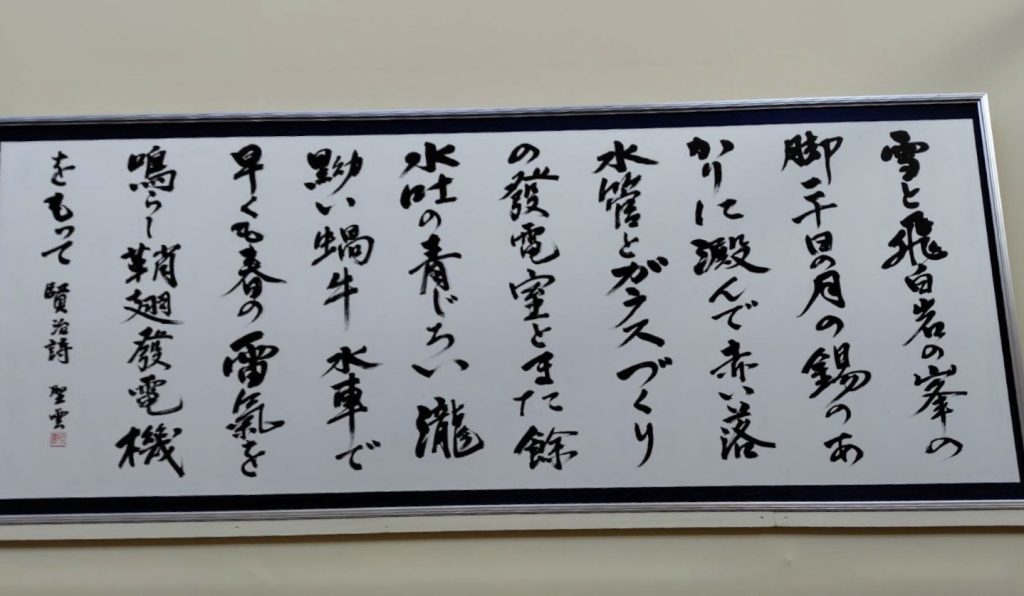 雪と飛白岩の峯の
脚二十日の月の錫のあ
かりに澱んで赤い落
水管とガラスづくり
の發電室とまた餘
水吐の青じろい瀧
黝い蝸牛水車で
早くも春の雷氣を
鳴らし鞘翅發電機
をもって 賢治詩 聖雲